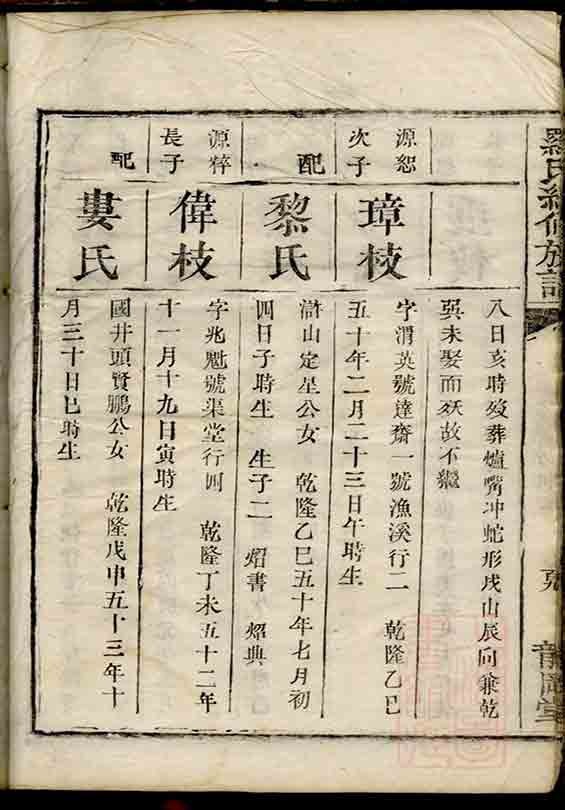 羅氏續修族譜
八日亥時歿葬爐嘴沖蛇形戌山辰向兼乾
巽未娶而殀故不繼
源恕
次子
璋枝
字渭英號達齋一號漁溪行二 乾隆乙巳
五十年二月二十三日午時生
配
黎氏
滸山定星公女 乾隆乙巳五十年七月初
四日子時生 生子二 炤書 炤典
源粹
長子
偉枝
字兆魁號渠堂行四 乾隆丁未五十二年
十一月十九日寅時生
配
婁氏
國井頭賢鵬公女 乾隆戊申五十三年十
月三十日巳時生